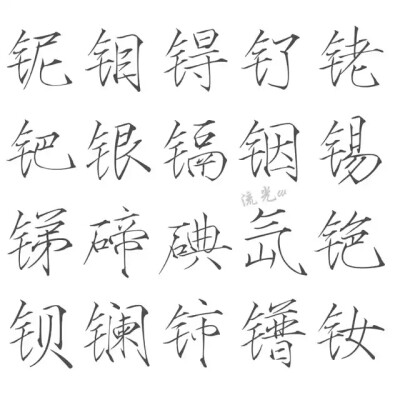 铌钼锝钌铑
钯银镉铟锡
流光
锑碲碘氙铯
钡镧铈镨钕